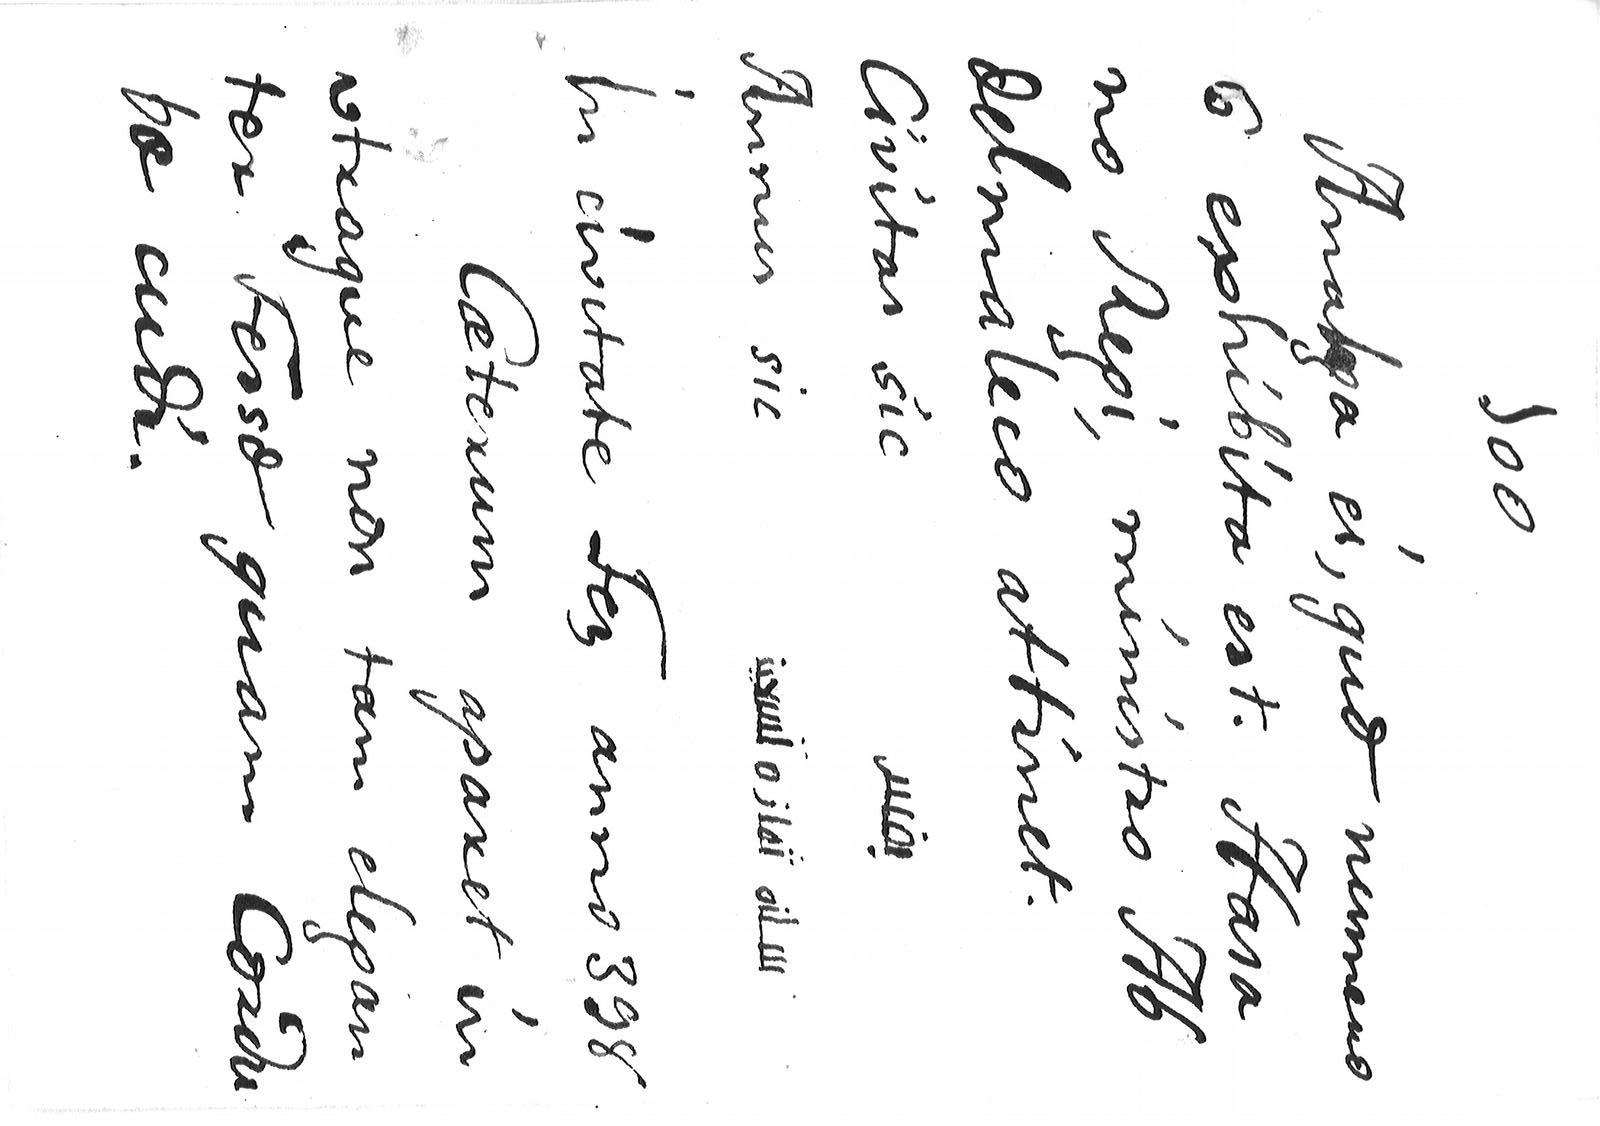 100
ei, numero
exhibita est. Hasa
no Regi, ministro Ab
delmaleco attinet.
Civitas sic بفاس
Annus sic
In civitate Fez anno 398
Cæterum aparet in
utraque non tam elegan
ter quam Cordu
bæ cudi.